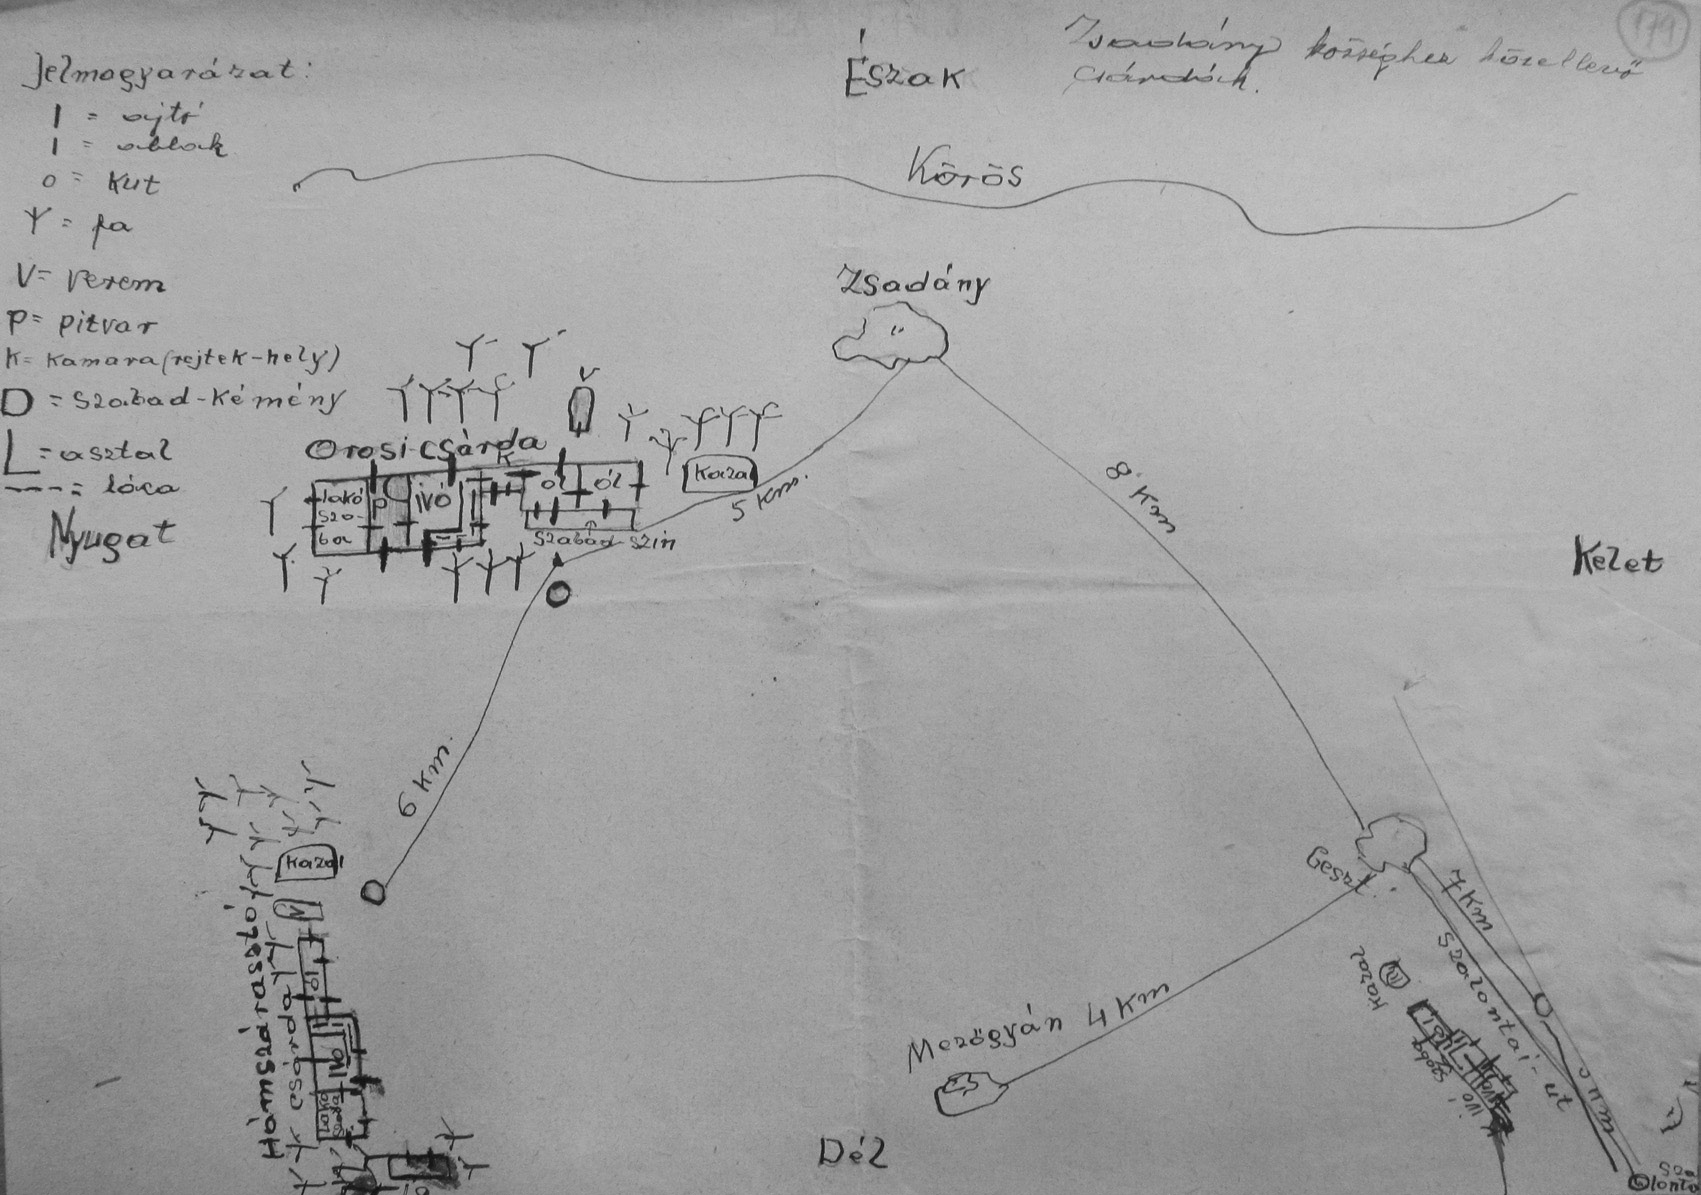 179
Zsadány községhez közellevő
csárdák.
Észak
Jelmagyarázat:
I = ajtó
I = ablak
o = kut
Y = fa
V = verem
P = pitvar
K = Kamara (rejtek-hely)
D = szabad-kémény
L = asztal
---- = lóca
Nyugat
Körös
Zsadány
V
Orosi csárda
K
lakó
szo-
ba
P
ivó
ól
ól
Kazal
Szabad szin
5 Km.
8 Km
Kelet
6 Km.
Kazal
V
Hámszárasztó
csárda
ól
IVÓ
Lakó
szoba
Geszt
7 Km
Szalontai-ut
Kazal
ól
Szoba
ivó
Mezőgyán 4 Km
Dél
Sza
lonta